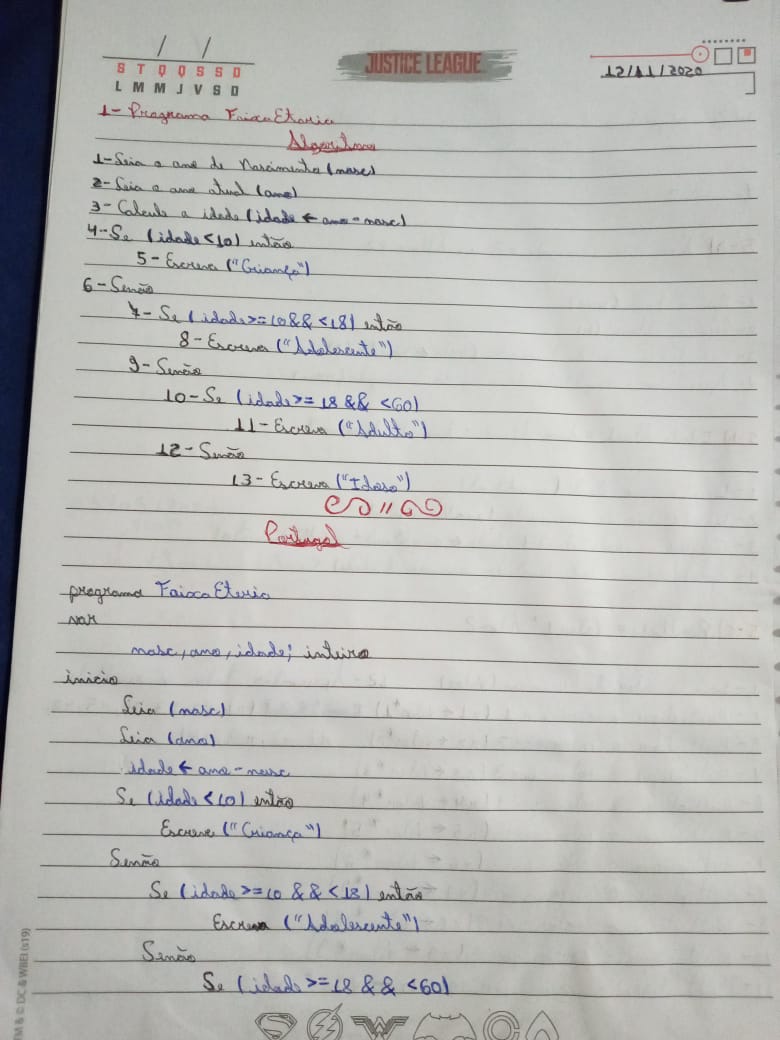 S T Q Q S S D
L M M J V S D
JUSTICE LEAGUE
12/11/2020
1- Programa FaixaEtaria
Algoritmo
1- Leia o ano de Nascimento (nasc)
2- Leia o ano atual (ano)
3- Calcule a idade (idade ← ano - nasc)
4- Se (idade < 10) então
5- Escreva ("Criança")
6- Senão
7- Se (idade >= 10 && < 18) então
8- Escreva ("Adolescente")
9- Senão
10- Se (idade >= 18 && < 60)
11- Escreva ("Adulto")
12- Senão
13- Escreva ("Idoso")
Portugol
programa FaixaEtaria
var
nasc, ano, idade; inteiro
inicio
Leia (nasc)
Leia (ano)
idade ← ano - nasc
Se (idade < 10) então
Escreva ("Criança")
Senão
Se (idade >= 10 && < 18) então
Escreva ("Adolescente")
Senão
Se (idade >= 18 && < 60)
TM & © DC & WBEI (s19)